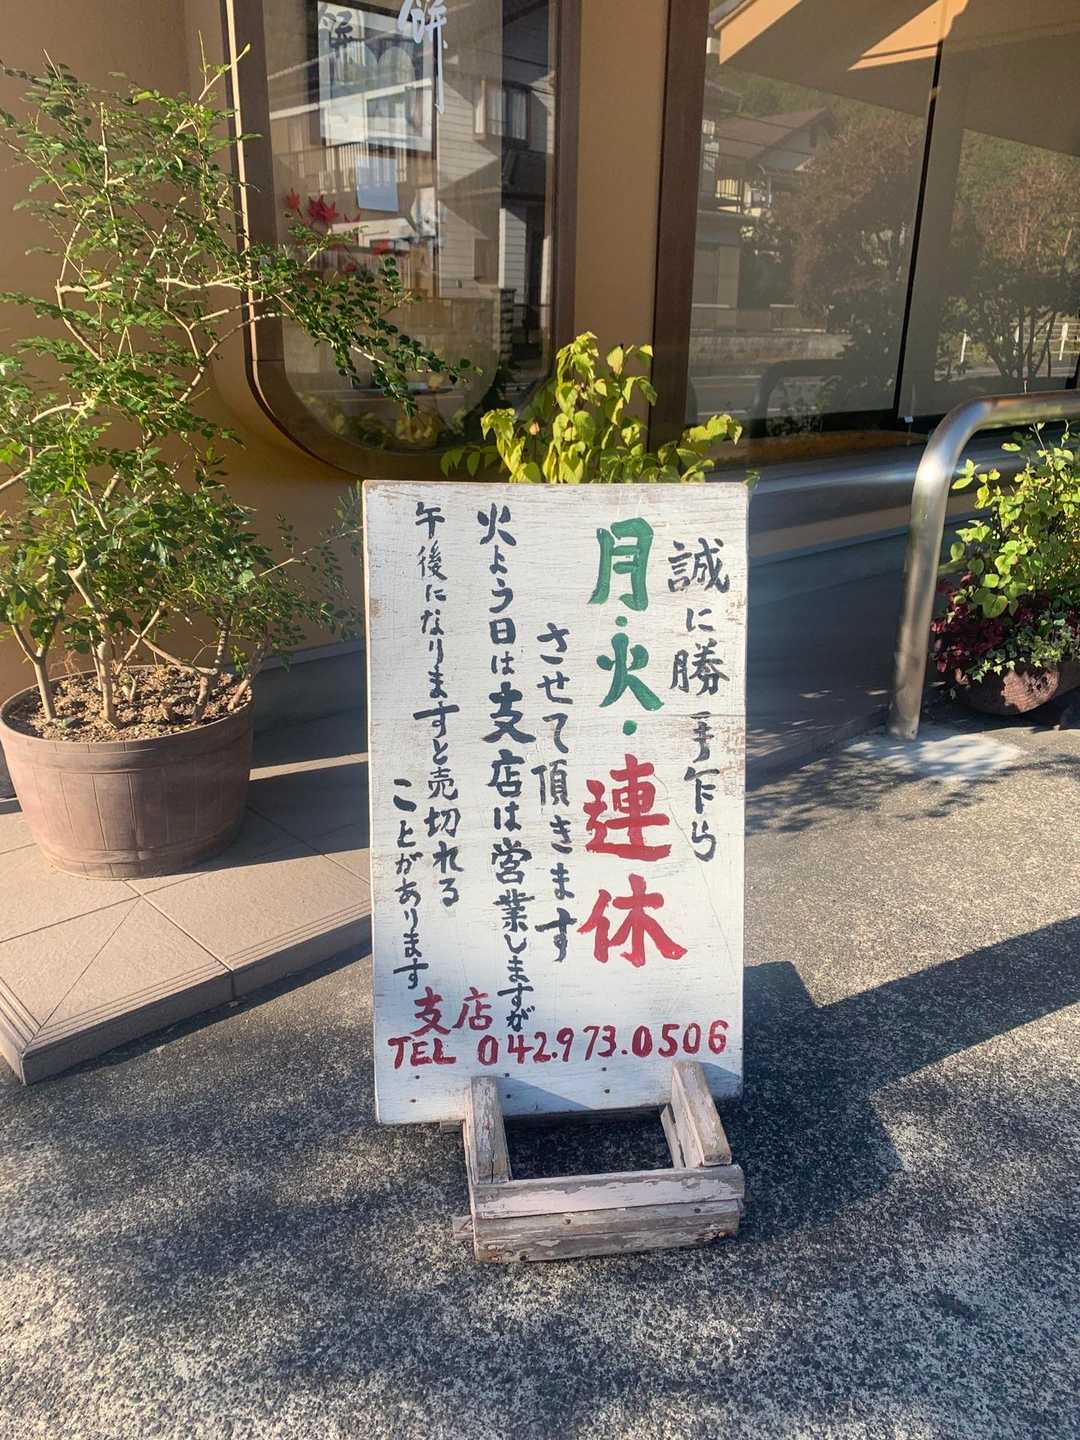 誠に勝手乍ら
月・火・連休
させて頂きます
火よう日は支店は営業しますが
午後になりますと売切れる
ことがあります
支店
TEL 042.973.0506
餅